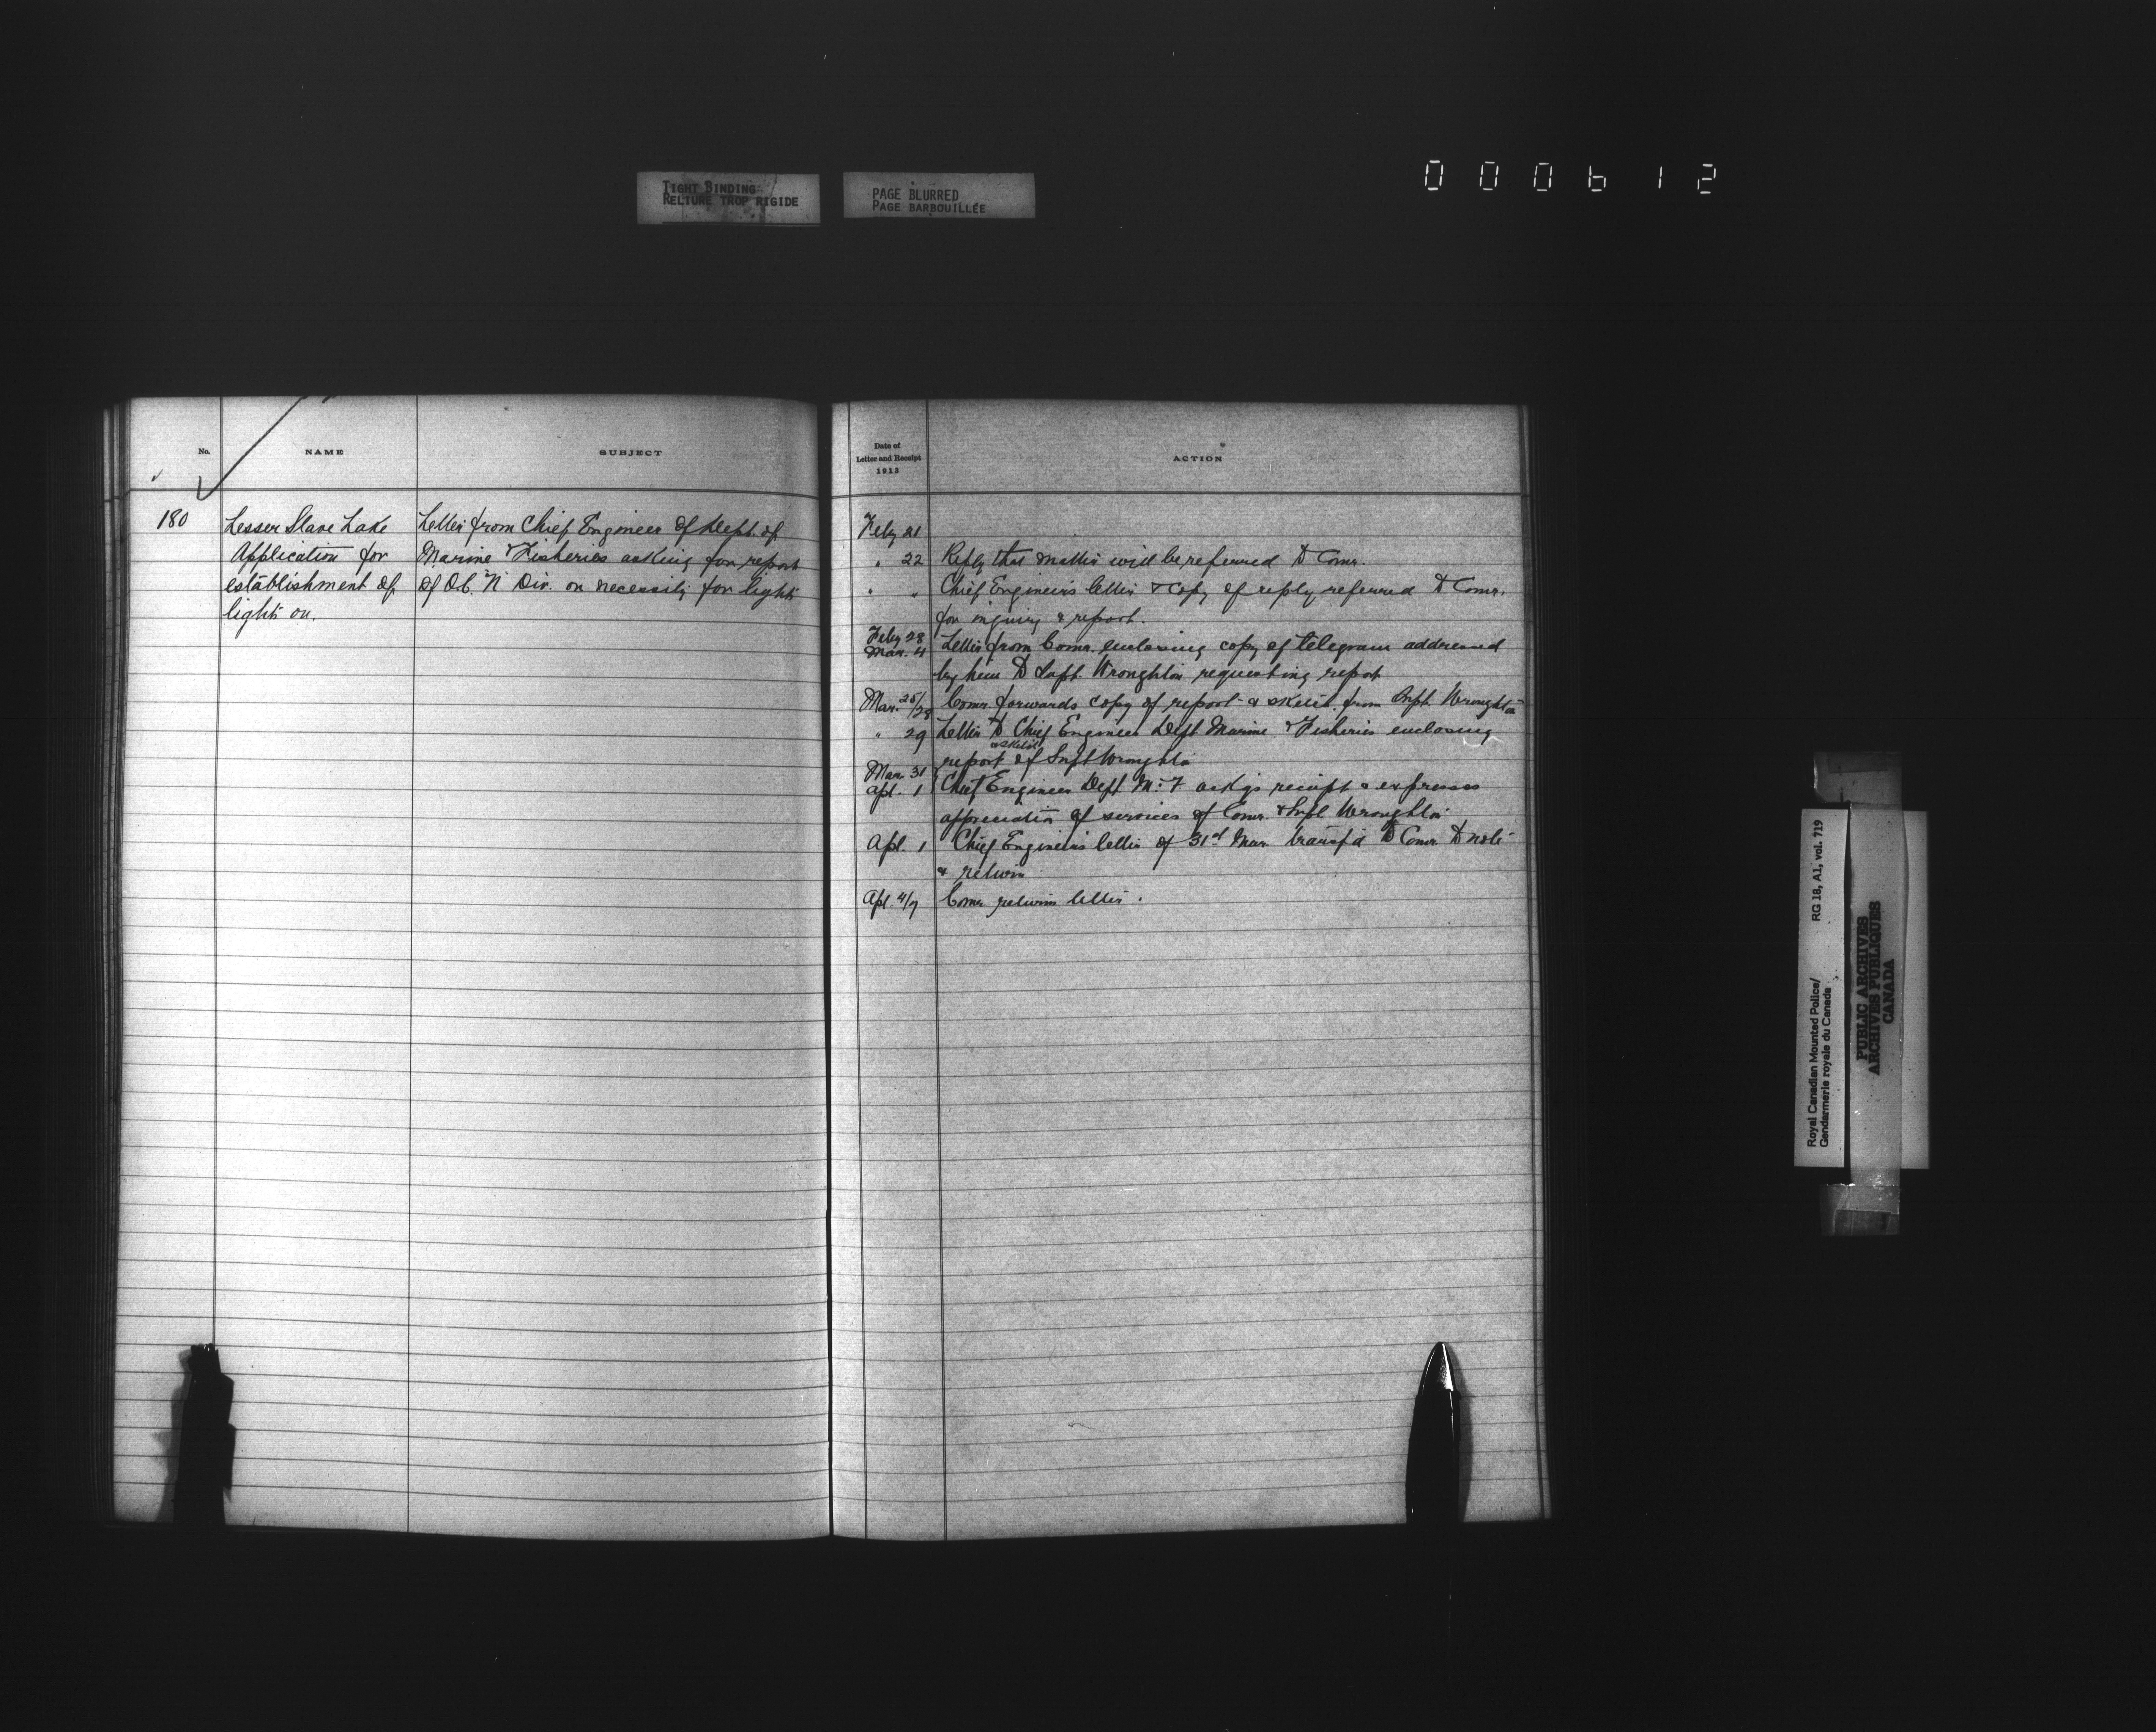 TIGHT BINDING
RELIURE TROP RIGIDE
PAGE BLURRED
PAGE BARBOUILLÉE
000612
No.
NAME
SUBJECT
180
Lesser Slave Lake
Application for
establishment of
lights on.
Letter from Chief Engineer of Dept. of
Marine & Fisheries asking for report
of O.C. "N" Div. on necessity for lights
Date of
Letter and Receipt
1913
ACTION
Feby 21
" 22 Reply that matter will be referred to Comr.
" " Chief Engineer's letter & copy of reply referred to Comr.
for inquiry & report.
Feby 28
Mar. 4 Letter from Comr. enclosing copy of telegram addressed
by him to Supt. Wroughton requesting report
Mar. 25/28 Comr. forwards copy of report & sketch from Supt. Wroughton
" 29 Letter to Chief Engineer Dept Marine & Fisheries enclosing
& sketch
report of Supt Wroughton
Mar. 31
Apl. 1 Chief Engineer Dept M. & F. ackgs receipt & expresses
appreciation of services of Comr. & Supt Wroughton
Apl. 1 Chief Engineer's letter of 31st Mar. transf'd to Comr. to note
& return
Apl. 4/7 Comr. returns letter.
Royal Canadian Mounted Police/
Gendarmerie royale du Canada
RG 18, A1, vol. 719
PUBLIC ARCHIVES
ARCHIVES PUBLIQUES
CANADA